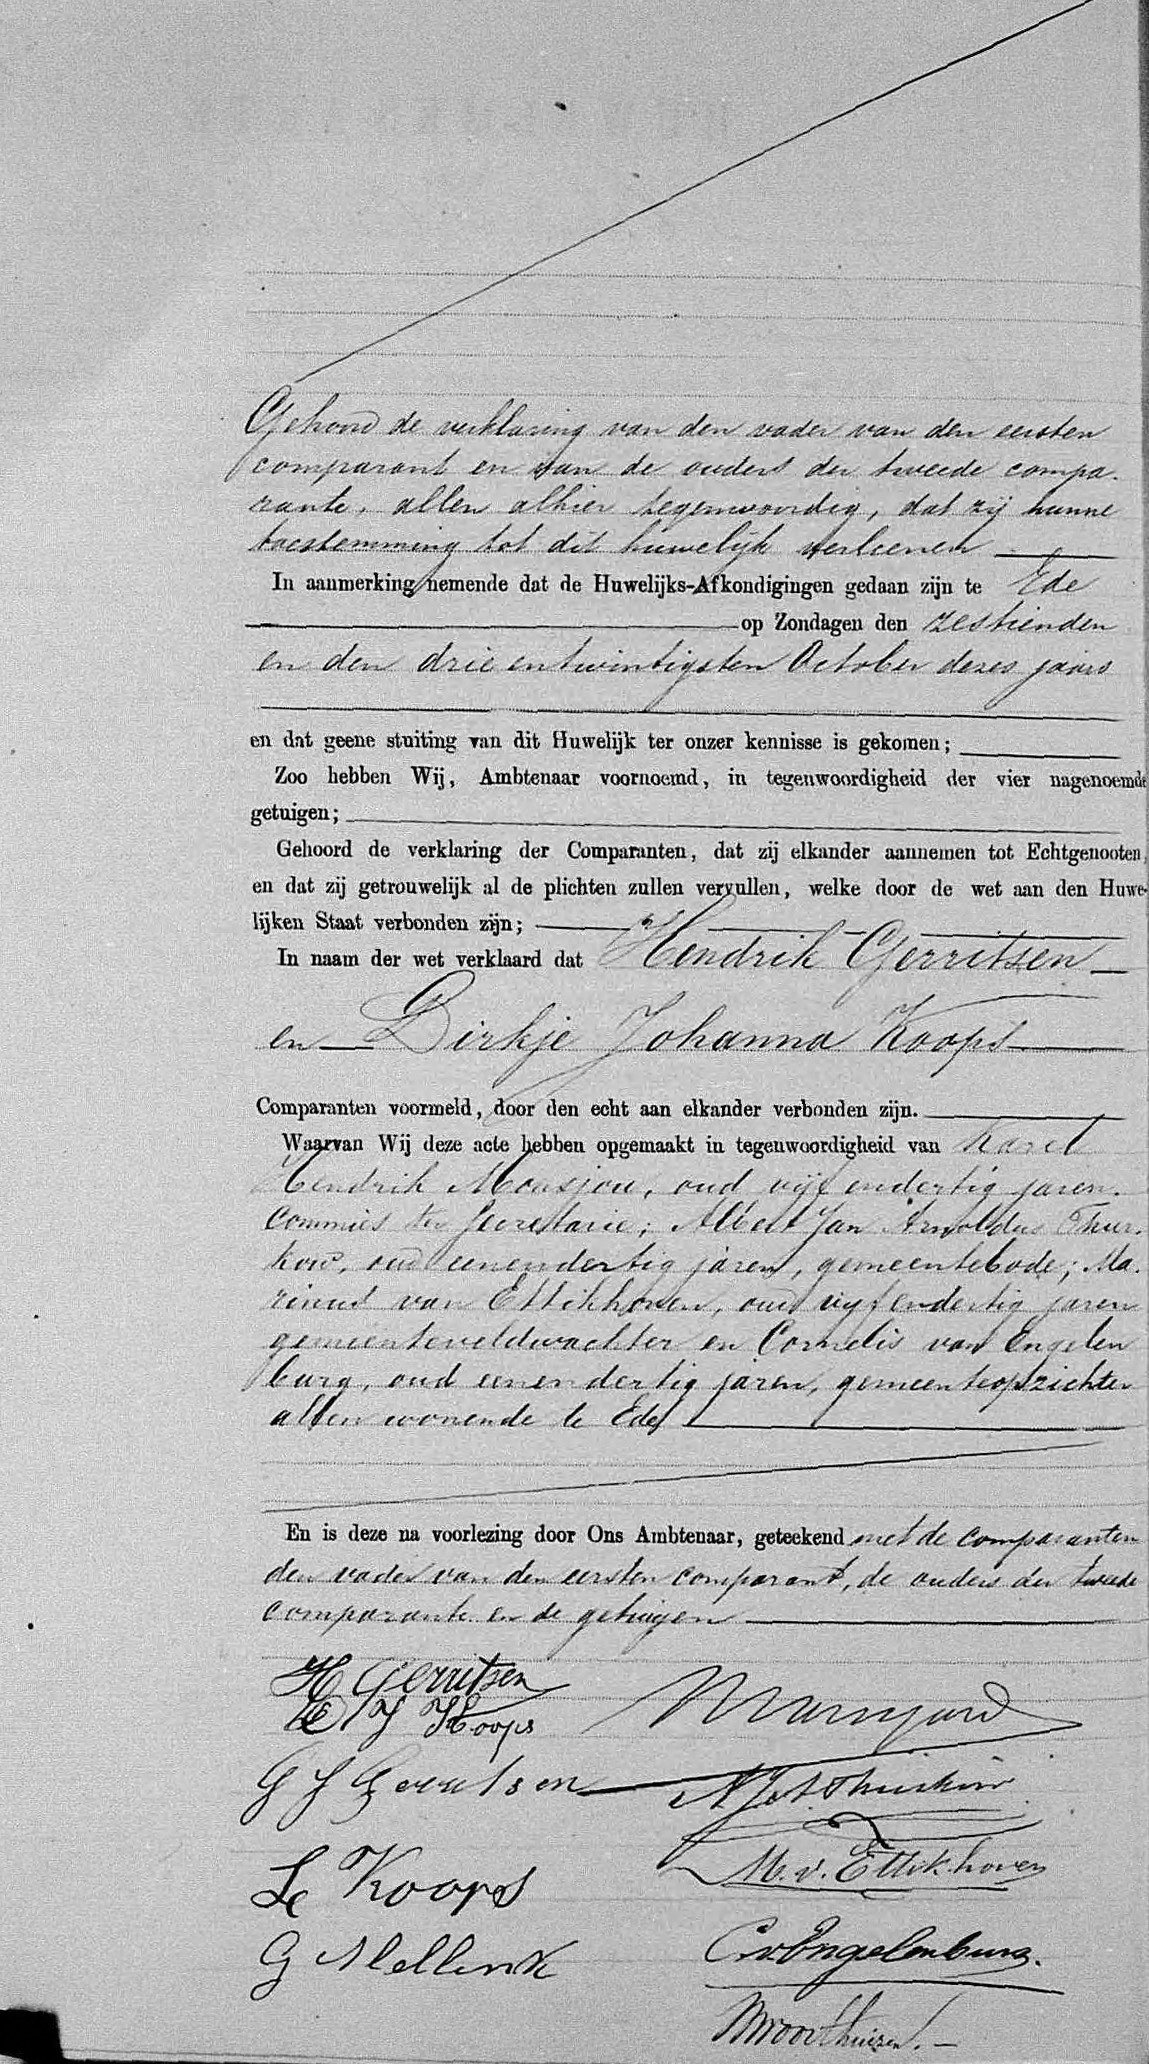 Gehoord de verklaring van den vader van den eersten
comparant en van de ouders der tweede compa-
rante, allen alhier tegenwoordig, dat zij hunne
toestemming tot dit huwelijk verleenen
In aanmerking nemende dat de Huwelijks-Afkondigingen gedaan zijn te Ede
op Zondagen den zestienden
en den drie en twintigsten October dezes jaars
en dat geene stuiting van dit Huwelijk ter onzer kennisse is gekomen;
Zoo hebben Wij, Ambtenaar voornoemd, in tegenwoordigheid der vier nagenoemde
getuigen;
Gehoord de verklaring der Comparanten, dat zij elkander aannemen tot Echtgenooten,
en dat zij getrouwelijk al de plichten zullen vervullen, welke door de wet aan den Huwe-
lijken Staat verbonden zijn;
In naam der wet verklaard dat Hendrik Gerritsen
en Dirkje Johanna Koops
Comparanten voormeld, door den echt aan elkander verbonden zijn.
Waarvan Wij deze acte hebben opgemaakt in tegenwoordigheid van Karel
Hendrik Monsjou, oud vijf endertig jaren,
commies ter Secretarie; Albert Jan Arnoldus Thur-
kow, oud eenendertig jaren, gemeentebode; Ma-
rinus van Ettikhoven, oud vijf endertig jaren
gemeenteveldwachter en Cornelis van Engelen
burg, oud eenendertig jaren, gemeenteopzichter
allen wonende te Ede
En is deze na voorlezing door Ons Ambtenaar, geteekend met de comparanten
den vader van den eersten comparant, de ouders der tweede
comparante en de getuigen
H Gerritsen
D J Koops
G J Gerritsen
A J A Thurkow
L Koops
M. v. Ettikhoven
G Mellink
C. v. Engelenburg.